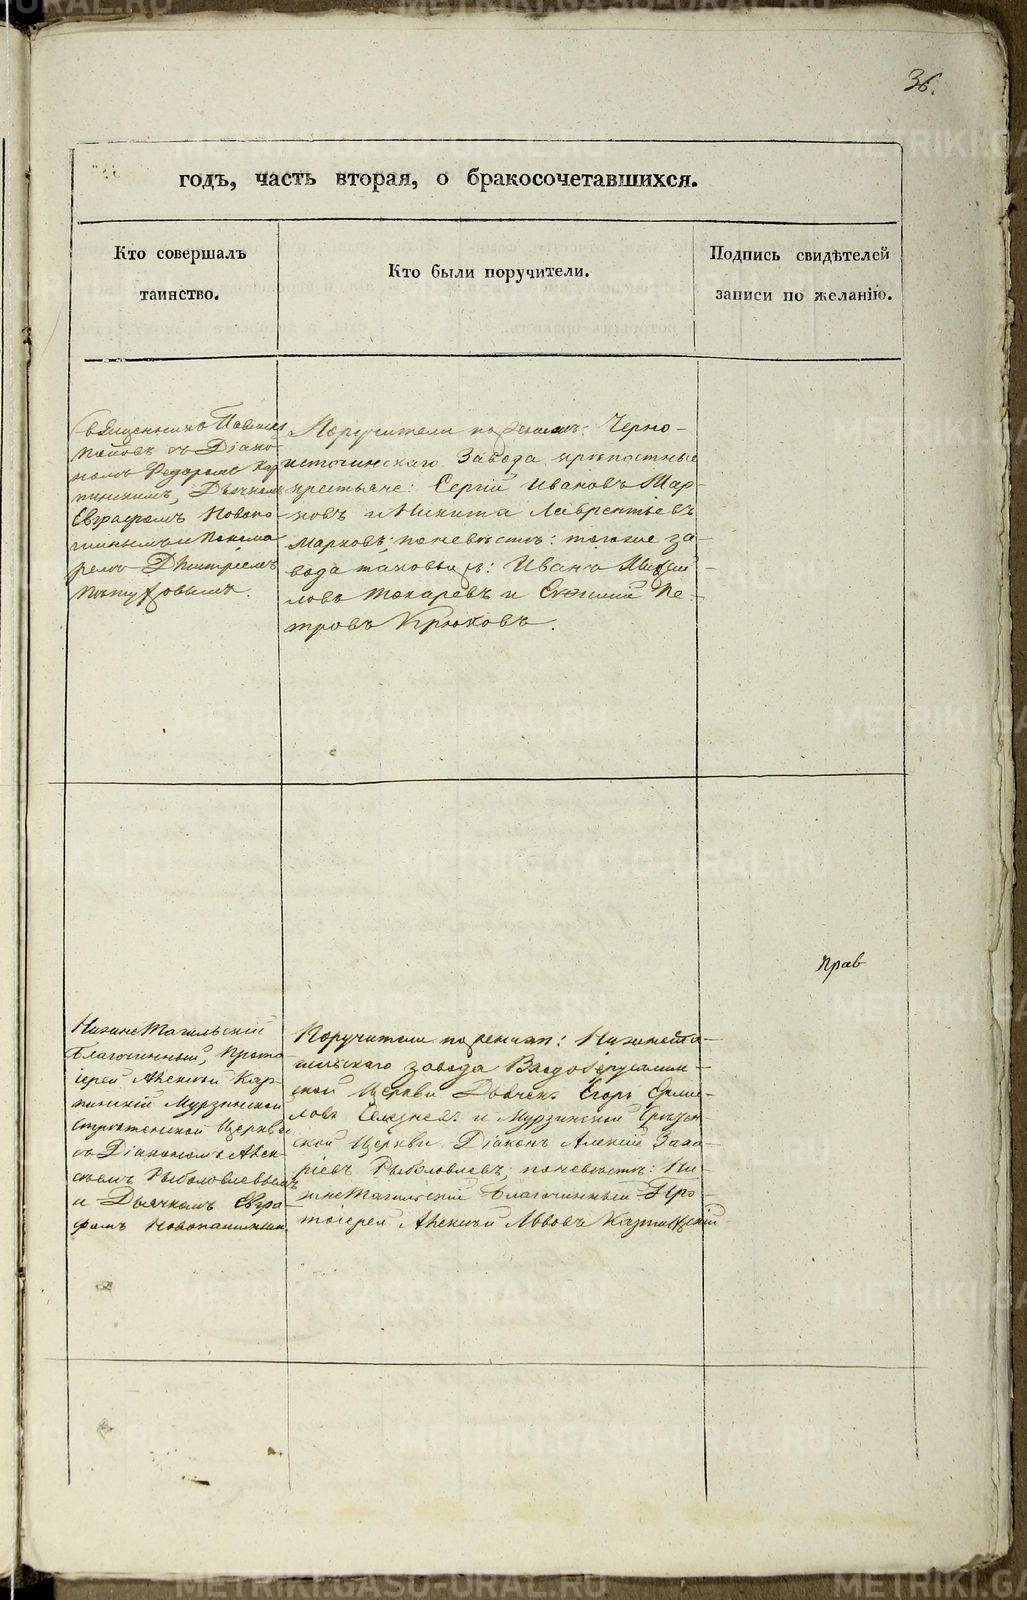 36.
годъ, часть вторая, о бракосочетавшихся.
Кто совершалъ
таинство.
Кто были поручители.
Подпись свидѣтелей
записи по желанію.
Священникъ
Поповъ съ Діако-
номъ Федоромъ Кар
пинскимъ, Дьячкомъ
Евграфомъ Новопа-
шинымъ и Понома
ремъ Дмитріемъ
Поручители по женихѣ: Черно-
источинскаго Завода крѣпостные
крестьяне: Сергій Ивановъ Мар-
ковъ и Никита Лаврентьевъ
Марковъ; по невѣстѣ: тогоже за-
вода таковыежъ: Иванъ Михай
ловъ Токаревъ и Евѳимій Пе-
тровъ Крюковъ.
Прав
НижнеТагильскій
Благочинный, Прото
іерей Алексій Кар
пинскій Мурзинской
Срѣтенской Церкви
съ Діакономъ Алек-
сѣемъ Рыболовлевымъ
и Дьячкомъ Евгра
фомъ Новопашинымъ.
Поручители по женихѣ: Нижнета-
гильскаго завода Входоіерусалим-
ской Церкви Дьячек. Егоръ
и Мурзинской Срѣтен
ской Церкви Діаконъ Алексій Заха-
ріевъ Рыболовлевъ; по невѣстѣ: Ни-
жнеТагильскій Благочинный Про-
тоіерей Алексій Львовъ Карпинскій
METRIKI.GASO-URAL.RU